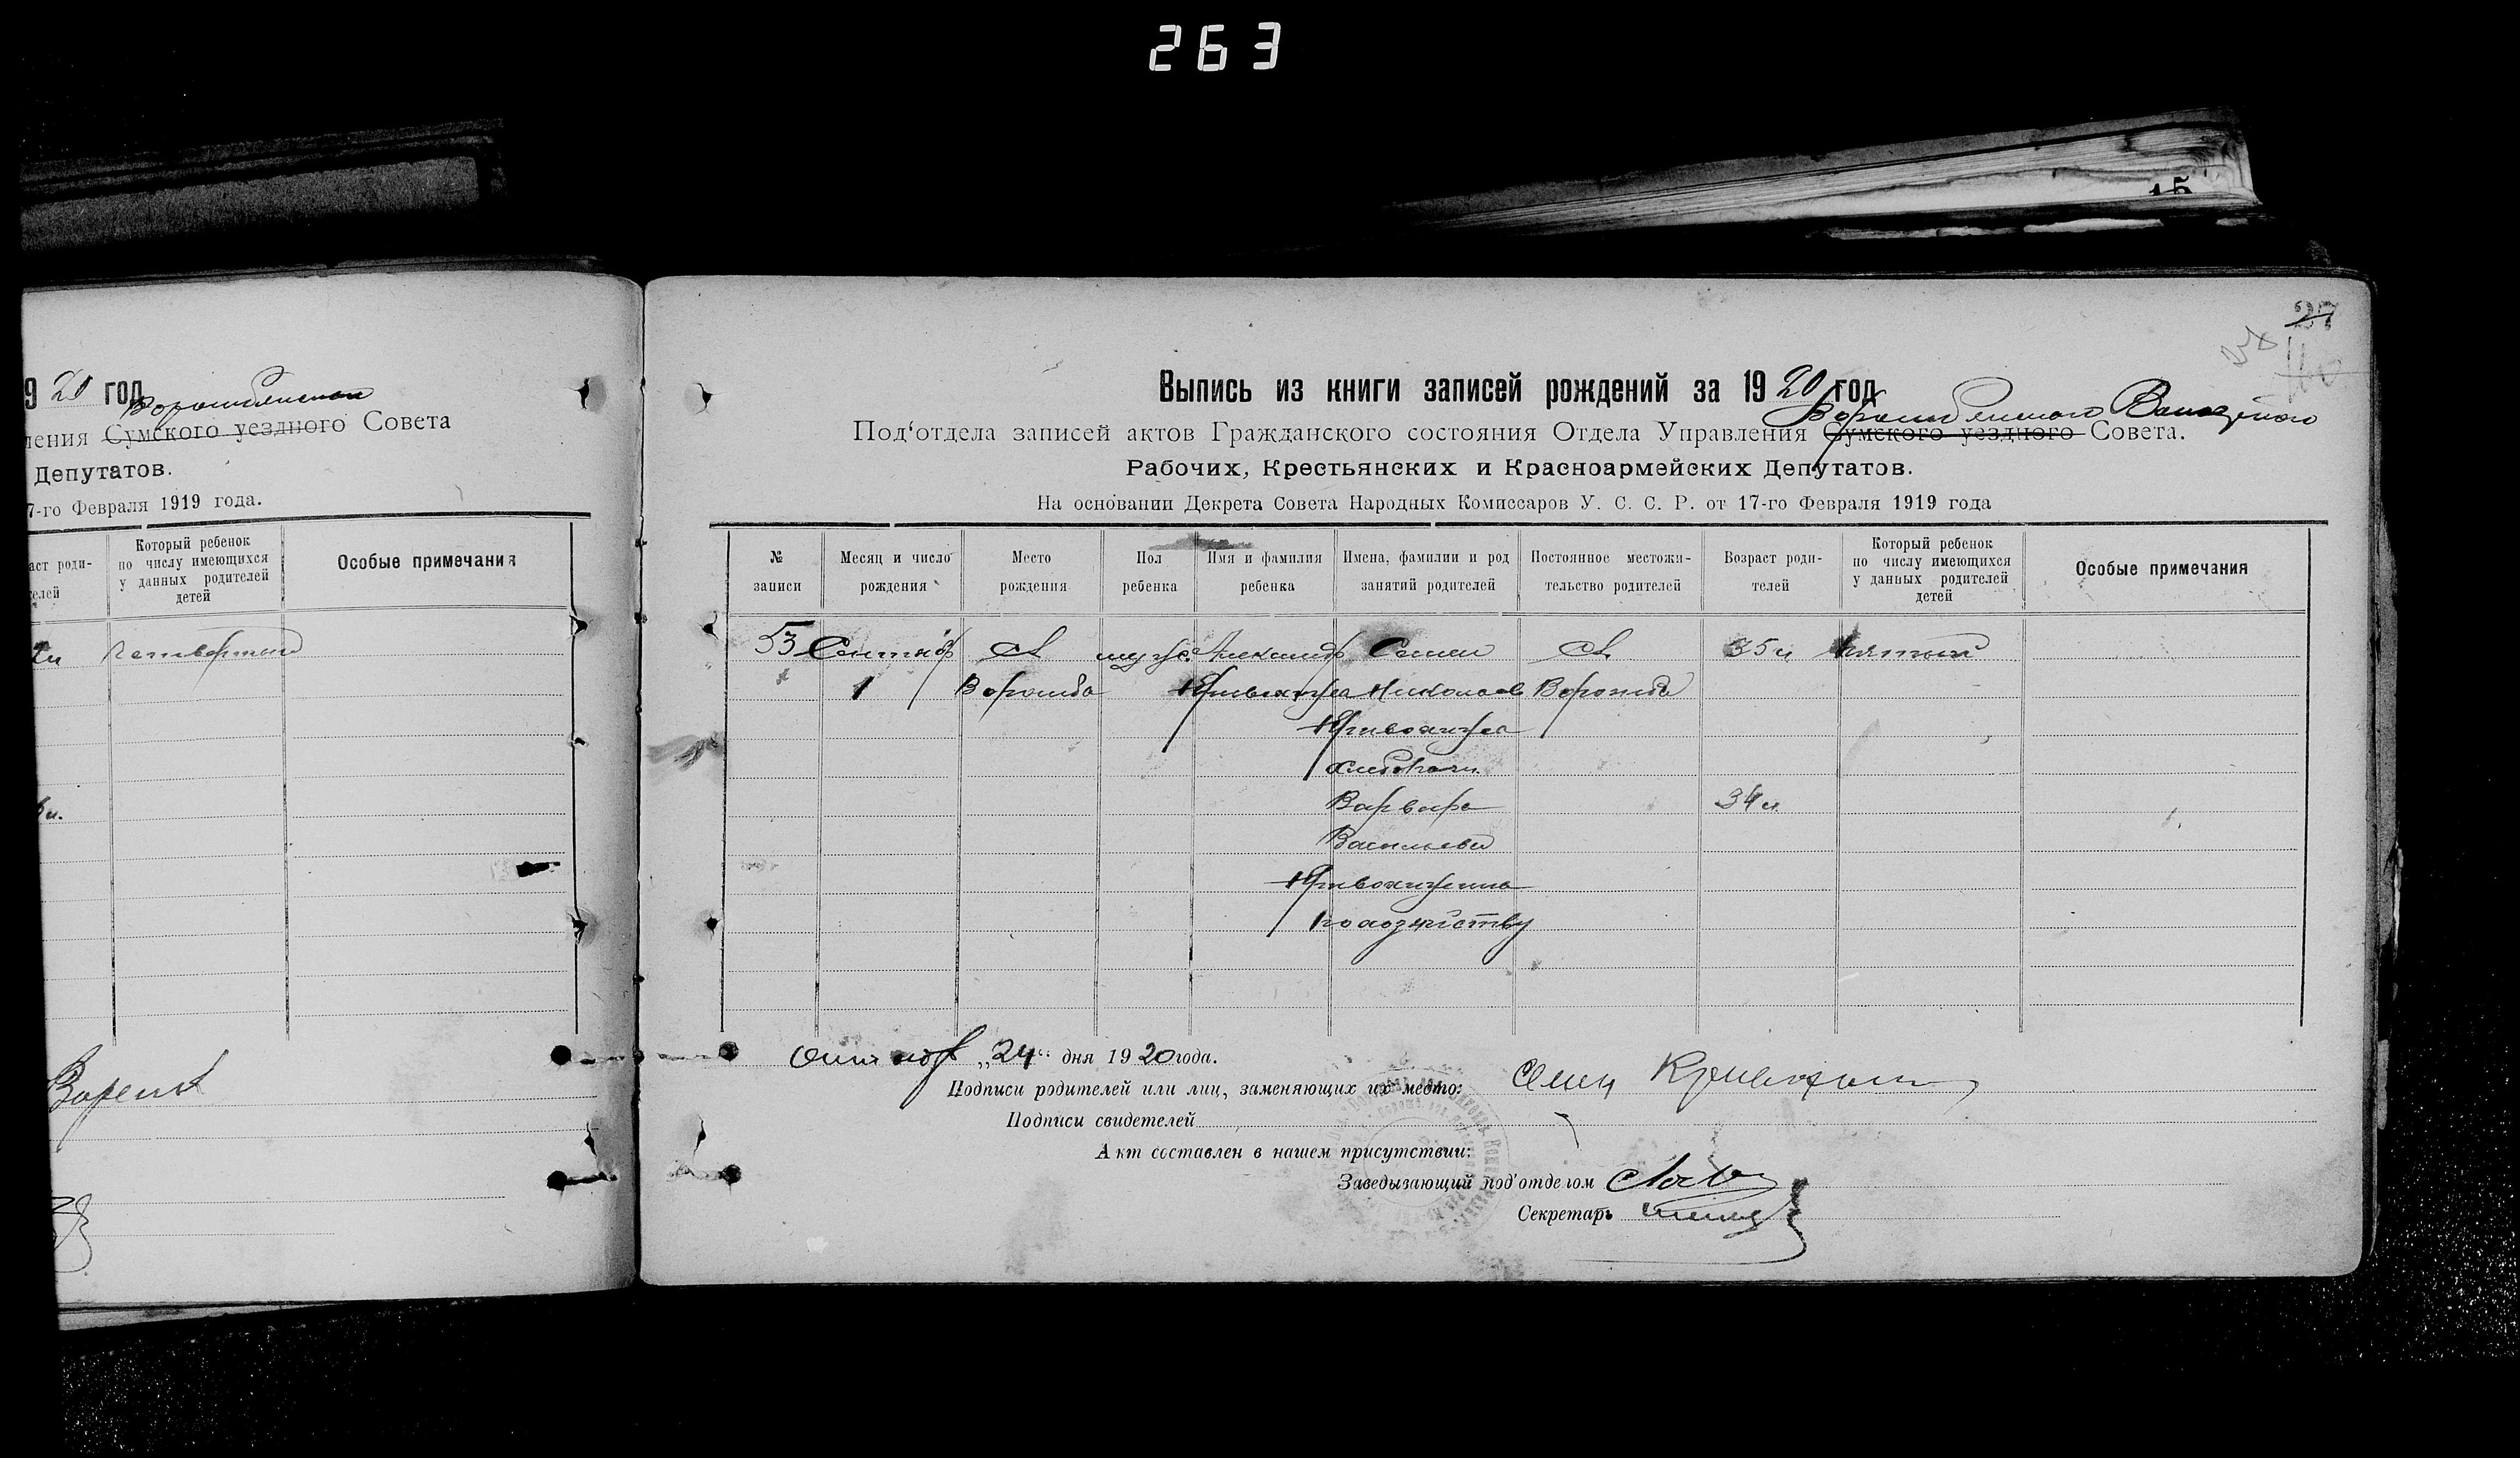 263
15
9 20 год
Ворожбянского
ления Сумского уездного Совета
Депутатов.
7-го Февраля 1919 года.
аст роди-
телей
Который ребенок
по числу имеющихся
у данных родителей
детей
Особые примечания
четвертый
27
Выпись из книги записей рождений за 1920 год
Ворожбянского Волостного
Под'отдела записей актов Гражданского состояния Отдела Управления Сумского уездного Совета.
Рабочих, Крестьянских и Красноармейских Депутатов.
На основании Декрета Совета Народных Комиссаров У. С. С. Р. от 17-го Февраля 1919 года
№ записи
Месяц и число рождения
Место рождения
Пол ребенка
Имя и фамилия ребенка
Имена, фамилии и род занятий родителей
Постоянное местожи-тельство родителей
Возраст роди-телей
Который ребенок по числу имеющихся у данных родителей детей
Особые примечания
53 Сентяб С муж. Александр Семен С. 35 л пятый
1 Ворожба Кривохижа Николаев Ворожба
Кривохижа
хлебопаш.
Варвара 34 л.
Васильева
Кривохижина
по хозяйству
Октяб „24“ дня 1920 года.
Подписи родителей или лиц, заменяющих их место: Семен
Подписи свидетелей
Акт составлен в нашем присутствии:
Заведывающий под'отделом
Секретарь